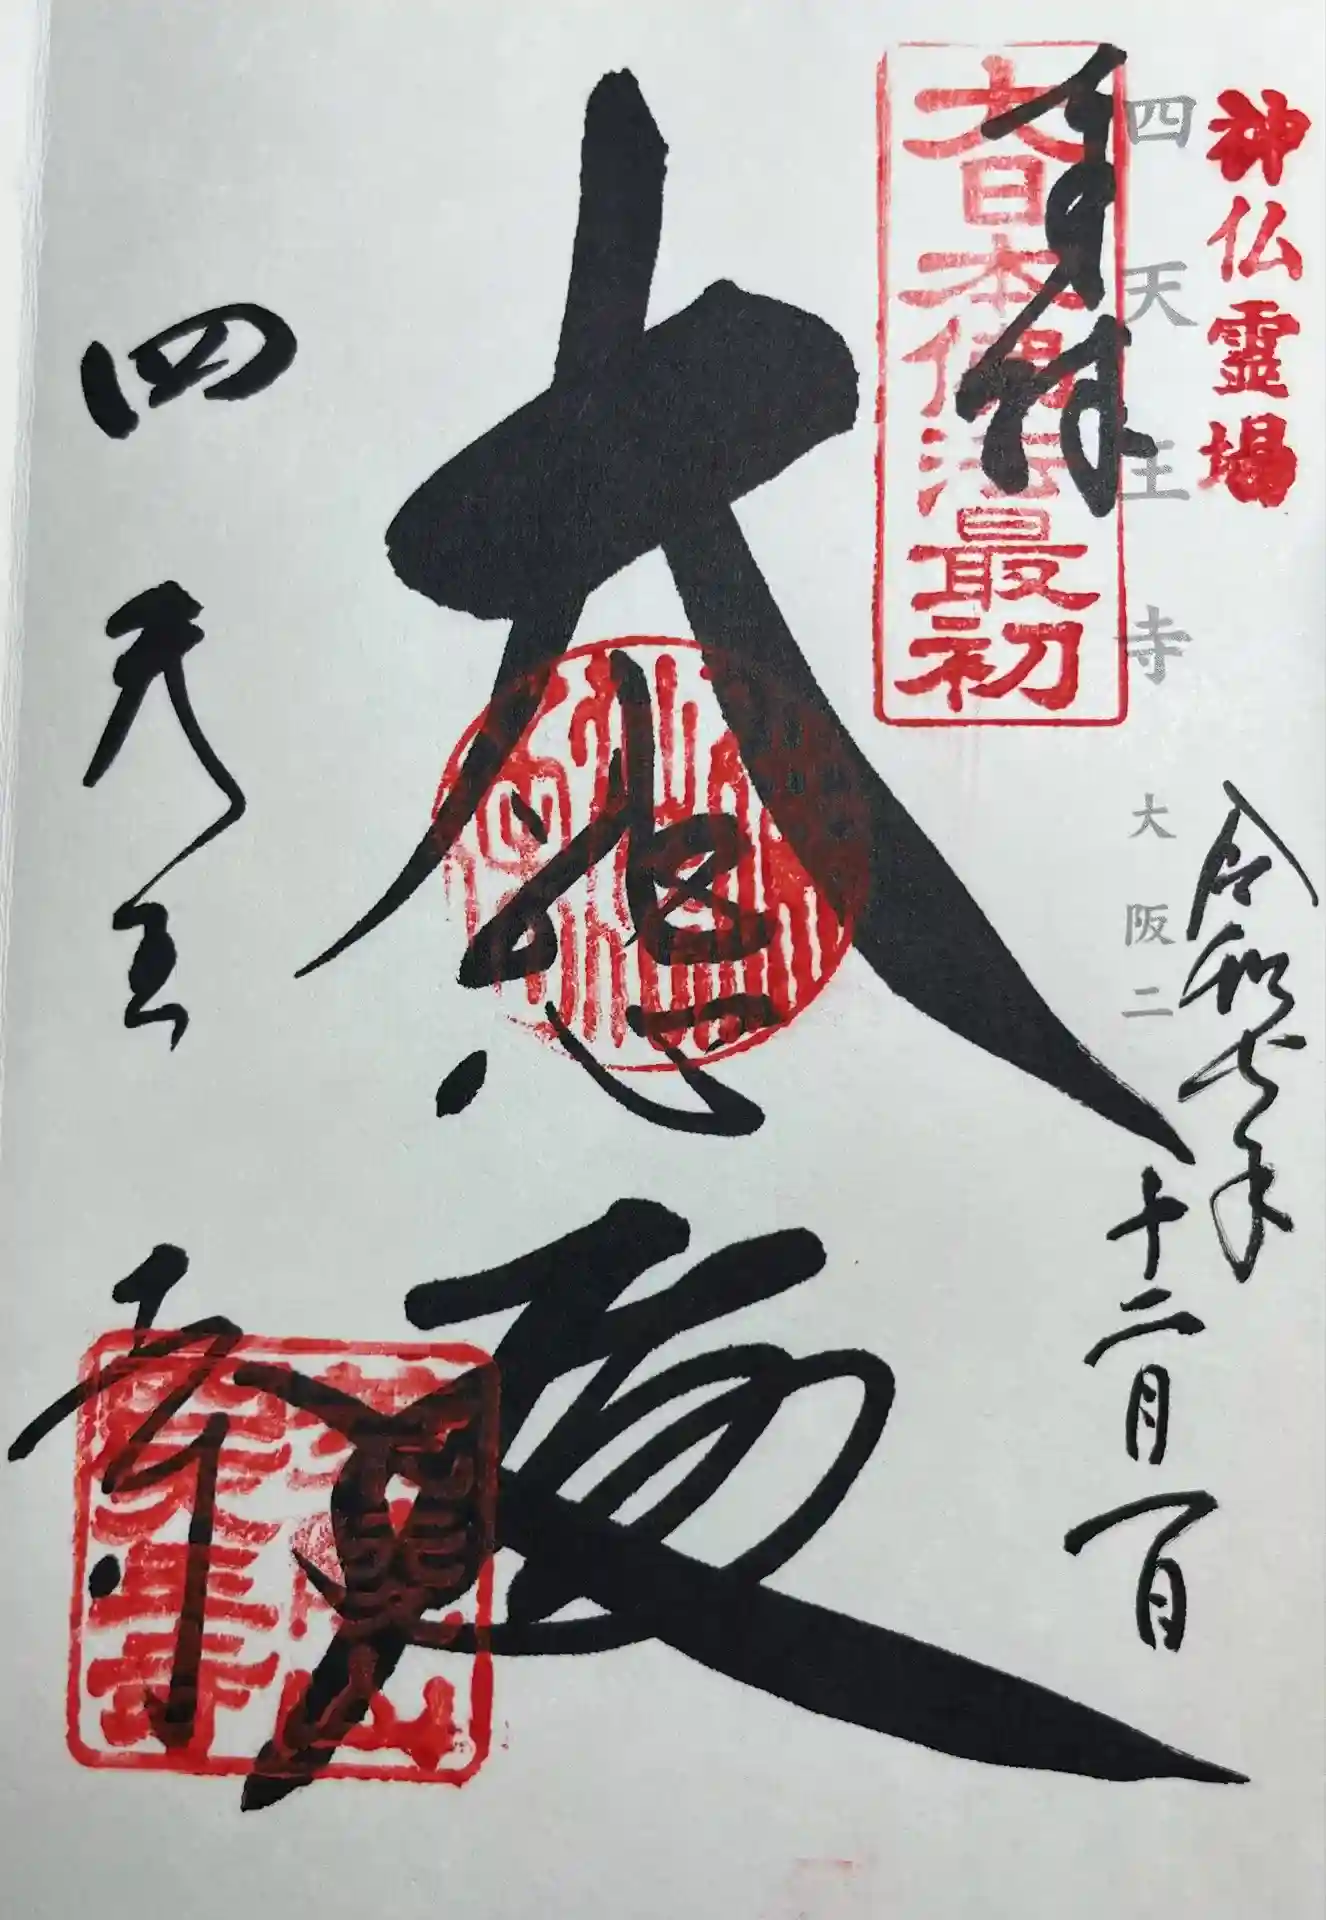 神仏霊場
四天王寺 大阪二
令和七年
十二月一日
奉拝
大日本佛法最初
大悲殿
四天王寺
荒陵山
四天王寺